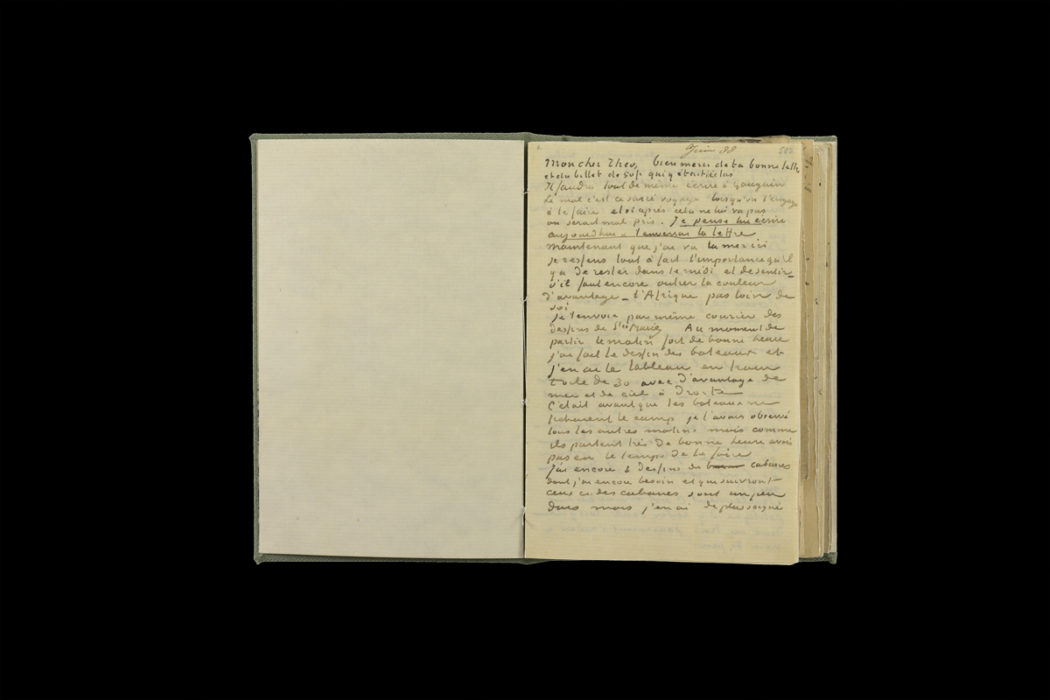 Juin 88
502
Mon cher Theo, bien merci de ta bonne lettre
et du billet de 50 f. qui y était inclus
Il faudra tout de même écrire à Gauguin
Le mal c'est ce sacré voyage lorsqu'on l'engage
à le faire et si après cela ne lui va pas
on serait mal pris. Je pense lui écrire
aujourdhui – t'enverrai la lettre
Maintenant que j'ai vu la mer ici
je ressens tout à fait l'importance qu'il
y a de rester dans le midi et de sentir –
s'il faut encore outrer la couleur
d'avantage – l'Afrique pas loin de
soi
Je t'envoie par même courier des
dessins de Stes Maries Au moment de
partir le matin fort de bonne heure
j'ai fait le dessin des bateaux et
j'en ai le tableau en train
toile de 30 avec d'avantage de
mer et de ciel à droite
C'était avant que les bateaux ne
fichassent le camp je l'avais observé
tous les autres matins mais comme
ils partent très de bonne heure avais
pas eu le temps de le faire
J'ai encore 3 dessins de cabanes
dont j'ai encore besoin et qui suivront
ceux ci des cabanes sont un peu
durs mais j'en ai de plus soigné